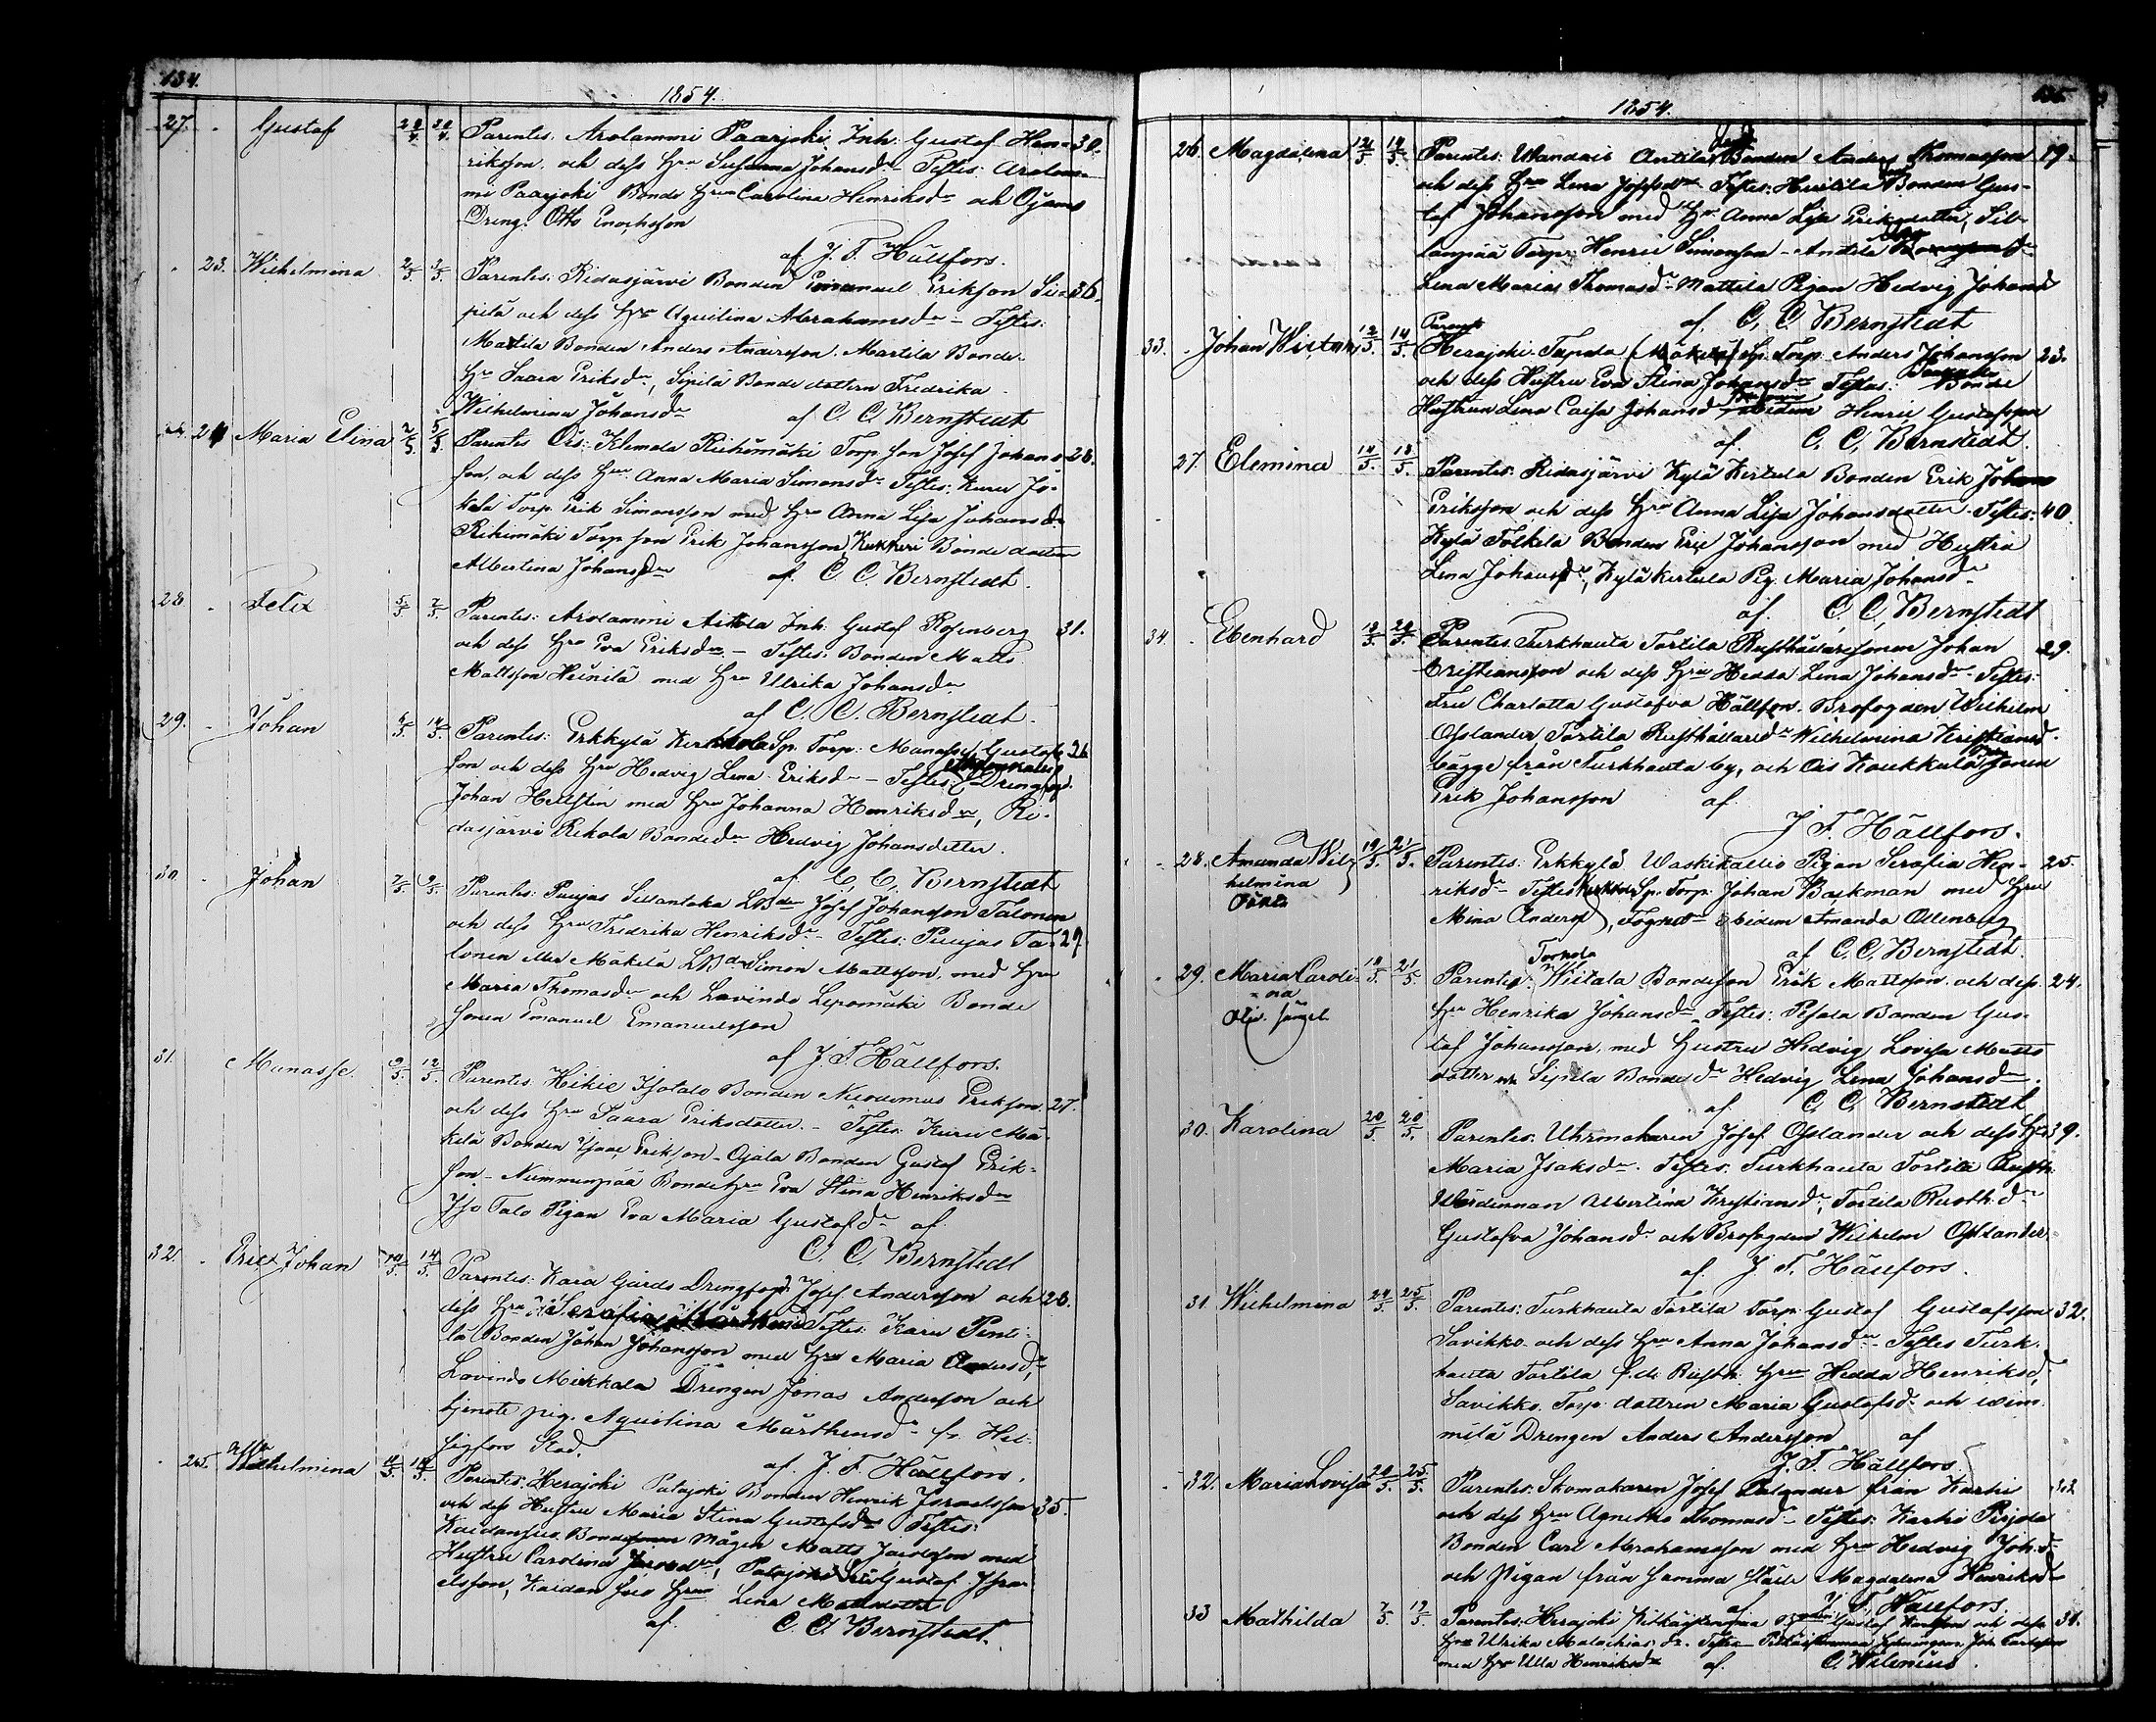 134.
1854.
27. Gustaf 20/4 30/4 Parentes: Arolammi Paarjoki Inh. Gustaf Hen- 30.
riksson och dess Hru Susanna Johansdr Testes: Arolam-
mi Paarjoki Bonde Hru Carolina Henriksdr och Ojams
Dreng. Otto Enochsson
af J. F. Hällfors.
23. Wilhelmina 2/5 3/5 Parentes: Ridasjärvi Bonden Emanuel Erikson Si- 36.
pilä och dess Hru Aqvilina Abrahamsdr - Testes:
Mattila Bonden Anders Andersson. Martila Bonde
Hr Saara Eriksdr, Sipilä Bonde dottern Fredrika
Wilhelmina Johansdr af C. C. Bernstedt
24 Maria Elina 2/5 5/5 Parentes Ois: Klemola Riihimäki Torp. son Josef Johans- 28.
son, och dess Hru Anna Maria Simonsdr Testes: Kuru Jo-
kela Torp. Erik Simonsson med Hru Anna Lisa Johansdr
Riihimäki Torp. son Erik Johansson, Kukkeri Bonde dottern
Albertina Johansdr af C. C. Bernstedt.
28. Felix 5/5 7/5 Parentes: Arolammi Aittola Inh. Gustaf Rosenberg 31.
och dess Hru Eva Eriksdr. - Testes: Bonden Matts
Mattsson Heinilä med Hru Ulrika Johansdr
af C. C. Bernstedt.
29. Johan 4/5 14/5 Parentes: Erkkylä Kerkkola Sp. Torp: Manasse Gustafs- 26
son och dess Hru Hedvig Lena Eriksdr - Testes: Drengsogd.
Johan Hellsten med Hru Johanna Henriksdr, Ri-
dasjärvi Rekola Bondedr Hedvig Johansdotter.
af C. C. Bernstedt
30. Johan 7/5 9/5 Parentes: Puujas Sillantaka LBdn Josef Johansson Talonen
och dess Hru Fredrika Henriksdr - Testes: Puujas Ta- 29
lonen eller Mäkelä LBdn Simon Mattsson, med Hru
Maria Thomasdr och Lavindo Lepomäki Bonde
sonen Emanuel Emanuelsson
af J. F. Hällfors.
31. Manasse. 9/5 12/5 Parentes. Hikie Isotalo Bonden Nicodemus Eriksson. 27.
och dess Hru Saara Eriksdotter. - Testes: Kuru Mä-
kelä Bonden Isaac Erikson - Ojala Bonden Gustaf Erik-
son - Nummenpää Bonde Hru Eva Stina Henriksdr
Iso Talo Pigan Eva Maria Gustafdr af
C. C. Bernstedt
32. Eric Johan 14/5 Parentes: Kara Gårds Drengfogd. Josef Andersson och 28.
dess Hru Serafia Testes: Karu Penti-
lä Bonden Johan Johansson med Hru Maria Andersdr,
Lavindo Mikkala Drengen Jonas Andersson och
tjenste pig. Aqvilina Mårthensdr fr. Hel-
singfors Stad. af. J. F. Hällfors.
25. Wilhelmina Parentes: Herajoki Palojoki Bonden Henrik Israelsson 35.
och dess Hustru Maria Stina Gustafsdr Testes:
Kaidansuo Bonde Mågen Matts Jacobsson med
Hustru Carolina, Palojoki Gustaf Isra-
elsson, Kaidan suo Hru Lena
af. C. C. Bernstedt.
135.
1854.
26 Magdalena 12/5 Parentes: Wandais Antila Bonden Anders Thomasson 19.
och dess Hru Lena Josefsdr Testes: Huilila Bonden Gus-
taf Johansson med Hr Anna Lisa Eriksdotter, Sil-
lanpää Torp. Henric Simonson - Antila
Lena Maria Thomasdr Mattila Pigan Hedvig Johansdr
af. C. C. Bernstedt
33. Johan Wictor, 12/5 14/5 Herajoki Tapola (Mäkelä) Sp. Torp. Anders Johansson 23.
och dess Hustru Eva Stina Johansdr Testes: Bonde
Hustrun Lena Caisa Johansdr Henric Gustafsson
af C. C. Bernstedt.
27. Elemina 14/5 18/5. Parentes: Ridasjärvi Kylä Kertula Bonden Erik Johan
Eriksson och dess Hru Anna Lisa Johansdotter. Testes: 40.
Kylä Tölkelä Bonden Eric Johansson med Hustru
Lena Johansdr, Kylä Kertula Pig. Maria Johansdr
af. C. C. Bernstedt
34. Ebenhard 18/5 20/5 Parentes: Turkhauta Tortila Rusthållaresonen Johan 29.
Cristiansson och dess Hru Hedda Lena Johansdr Testes:
Fru Charlotta Gustafva Hällfors. Brofogden Wilhelm
Oslander Tortila Rusthållaredr Wilhelmina Kristiansd.
bägge från Turkhauta by, och Ois Koukkula sonen
Erik Johansson af.
J. F. Hällfors.
28. Amanda Wil- 19/5 21/5. Parentes: Erkkylä Waskikallio Pigan Serafia Hen- 25.
helmina riksdr Testes Sp. Torp. Johan Backman med Hru
Mina Andersd, ibidem Amanda Ollenberg
af C. C. Bernstedt.
29. Maria Caroli- 18/5 21/5. Parentes: Torhola Wiitala Bondeson Erik Mattsson och dess 24.
na Hru Henrika Johansdr Testes: Pesola Bonden Gus-
taf Johansson, med Hustru Hedvig Lovisa Matts
dotter och Sipilä Bonde dr Hedvig Lena Johansdr.
af C. C. Bernstedt
30. Karolina 20/5 20/5. Parentes: Uhrmakaren Josef Oslander och dess Hru 39.
Maria Isaksdr. Testes. Turkhauta Tortila Rusth.
Wärdinnan Albertina Kristiansdr, Tortila Rusth. dr
Gustafva Johansdr och Brofogden Wilhelm Oslander.
af J. F. Hällfors.
31. Wilhelmina 24/5 25/5 Parentes: Turkhauta Tortila Torp. Gustaf Gustafsson 32.
Savikko. och dess Hru Anna Johansdr. Testes Turk-
hauta Tortila f. d. Rusth. Hru Hedda Henriksd,
Savikko. Torp. dottren Maria Gustafsdr och
Drengen Anders Andersson af
J. F. Hällfors.
32. Maria Lovisa 20/5 25/5. Parentes: Skomakaren Josef Palander från Karhi 33
och dess Hru Agnetha Thomasdr - Testes: Karhi Pirjola
Bonden Carl Abrahamsson med Hru Hedvig Joh.dr
och Pigan från samma ställe Magdalena Henriksdr
af J. F. Hällfors.
33 Mathilda 7/5 19/5 Parentes: Herajoki Gustaf och dess 31.
Hru Ulrika Malachias dr. Testes Joh. Carlsson
med Hru Ulla Henriksdr af. C. Wilenius.